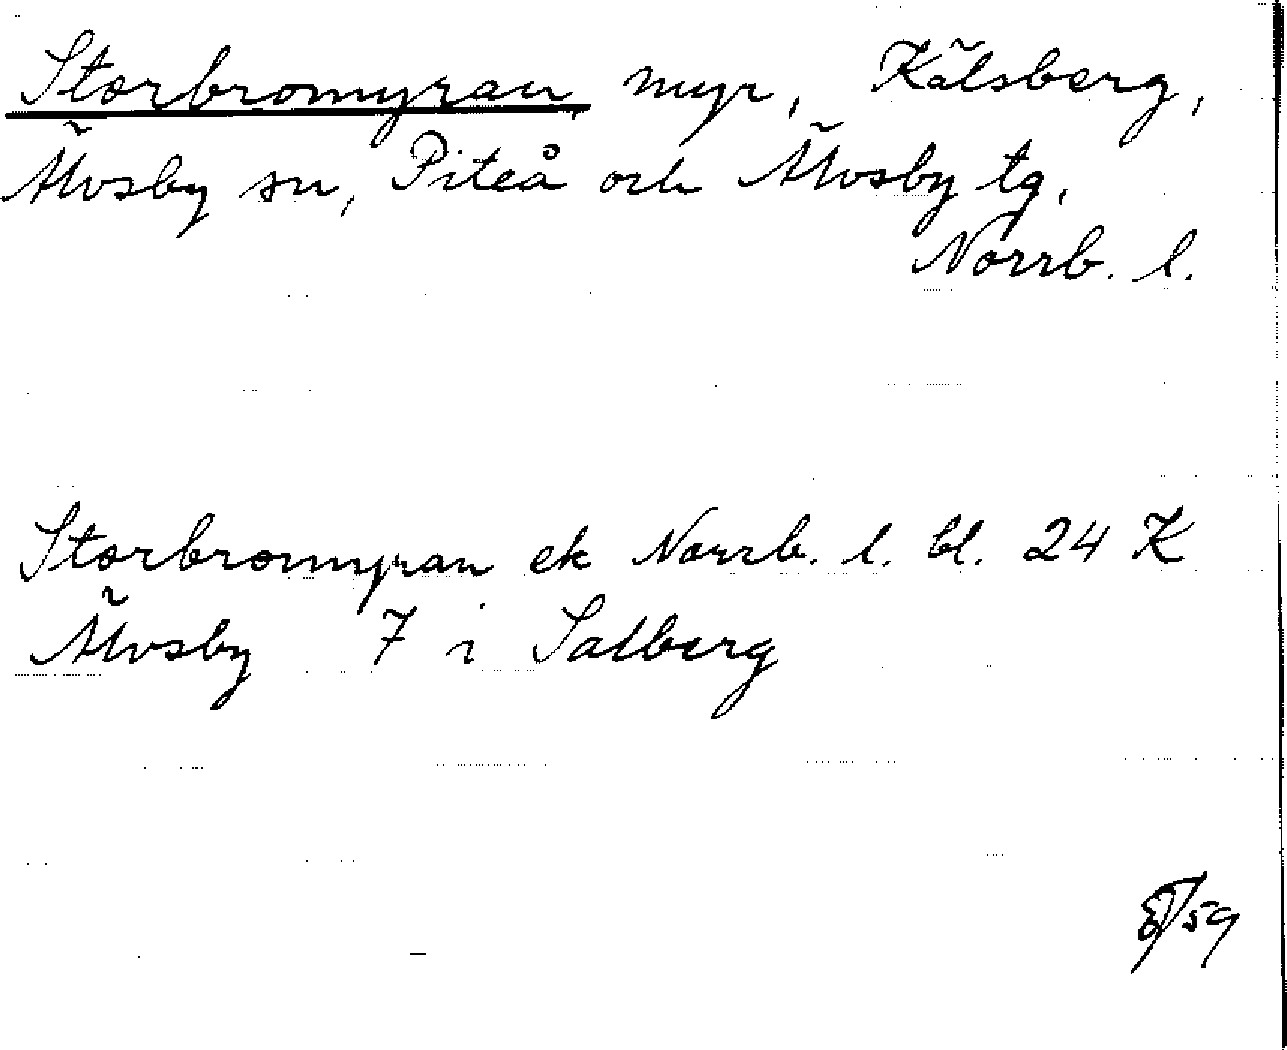 Storbromyran, myr, Kälsberg,
Älvsby sn, Piteå och Älvsby tg,
Norrb. l.
Storbromyran ek Norrb. l. bl. 24 K
Älvsby 7 i Salberg
59